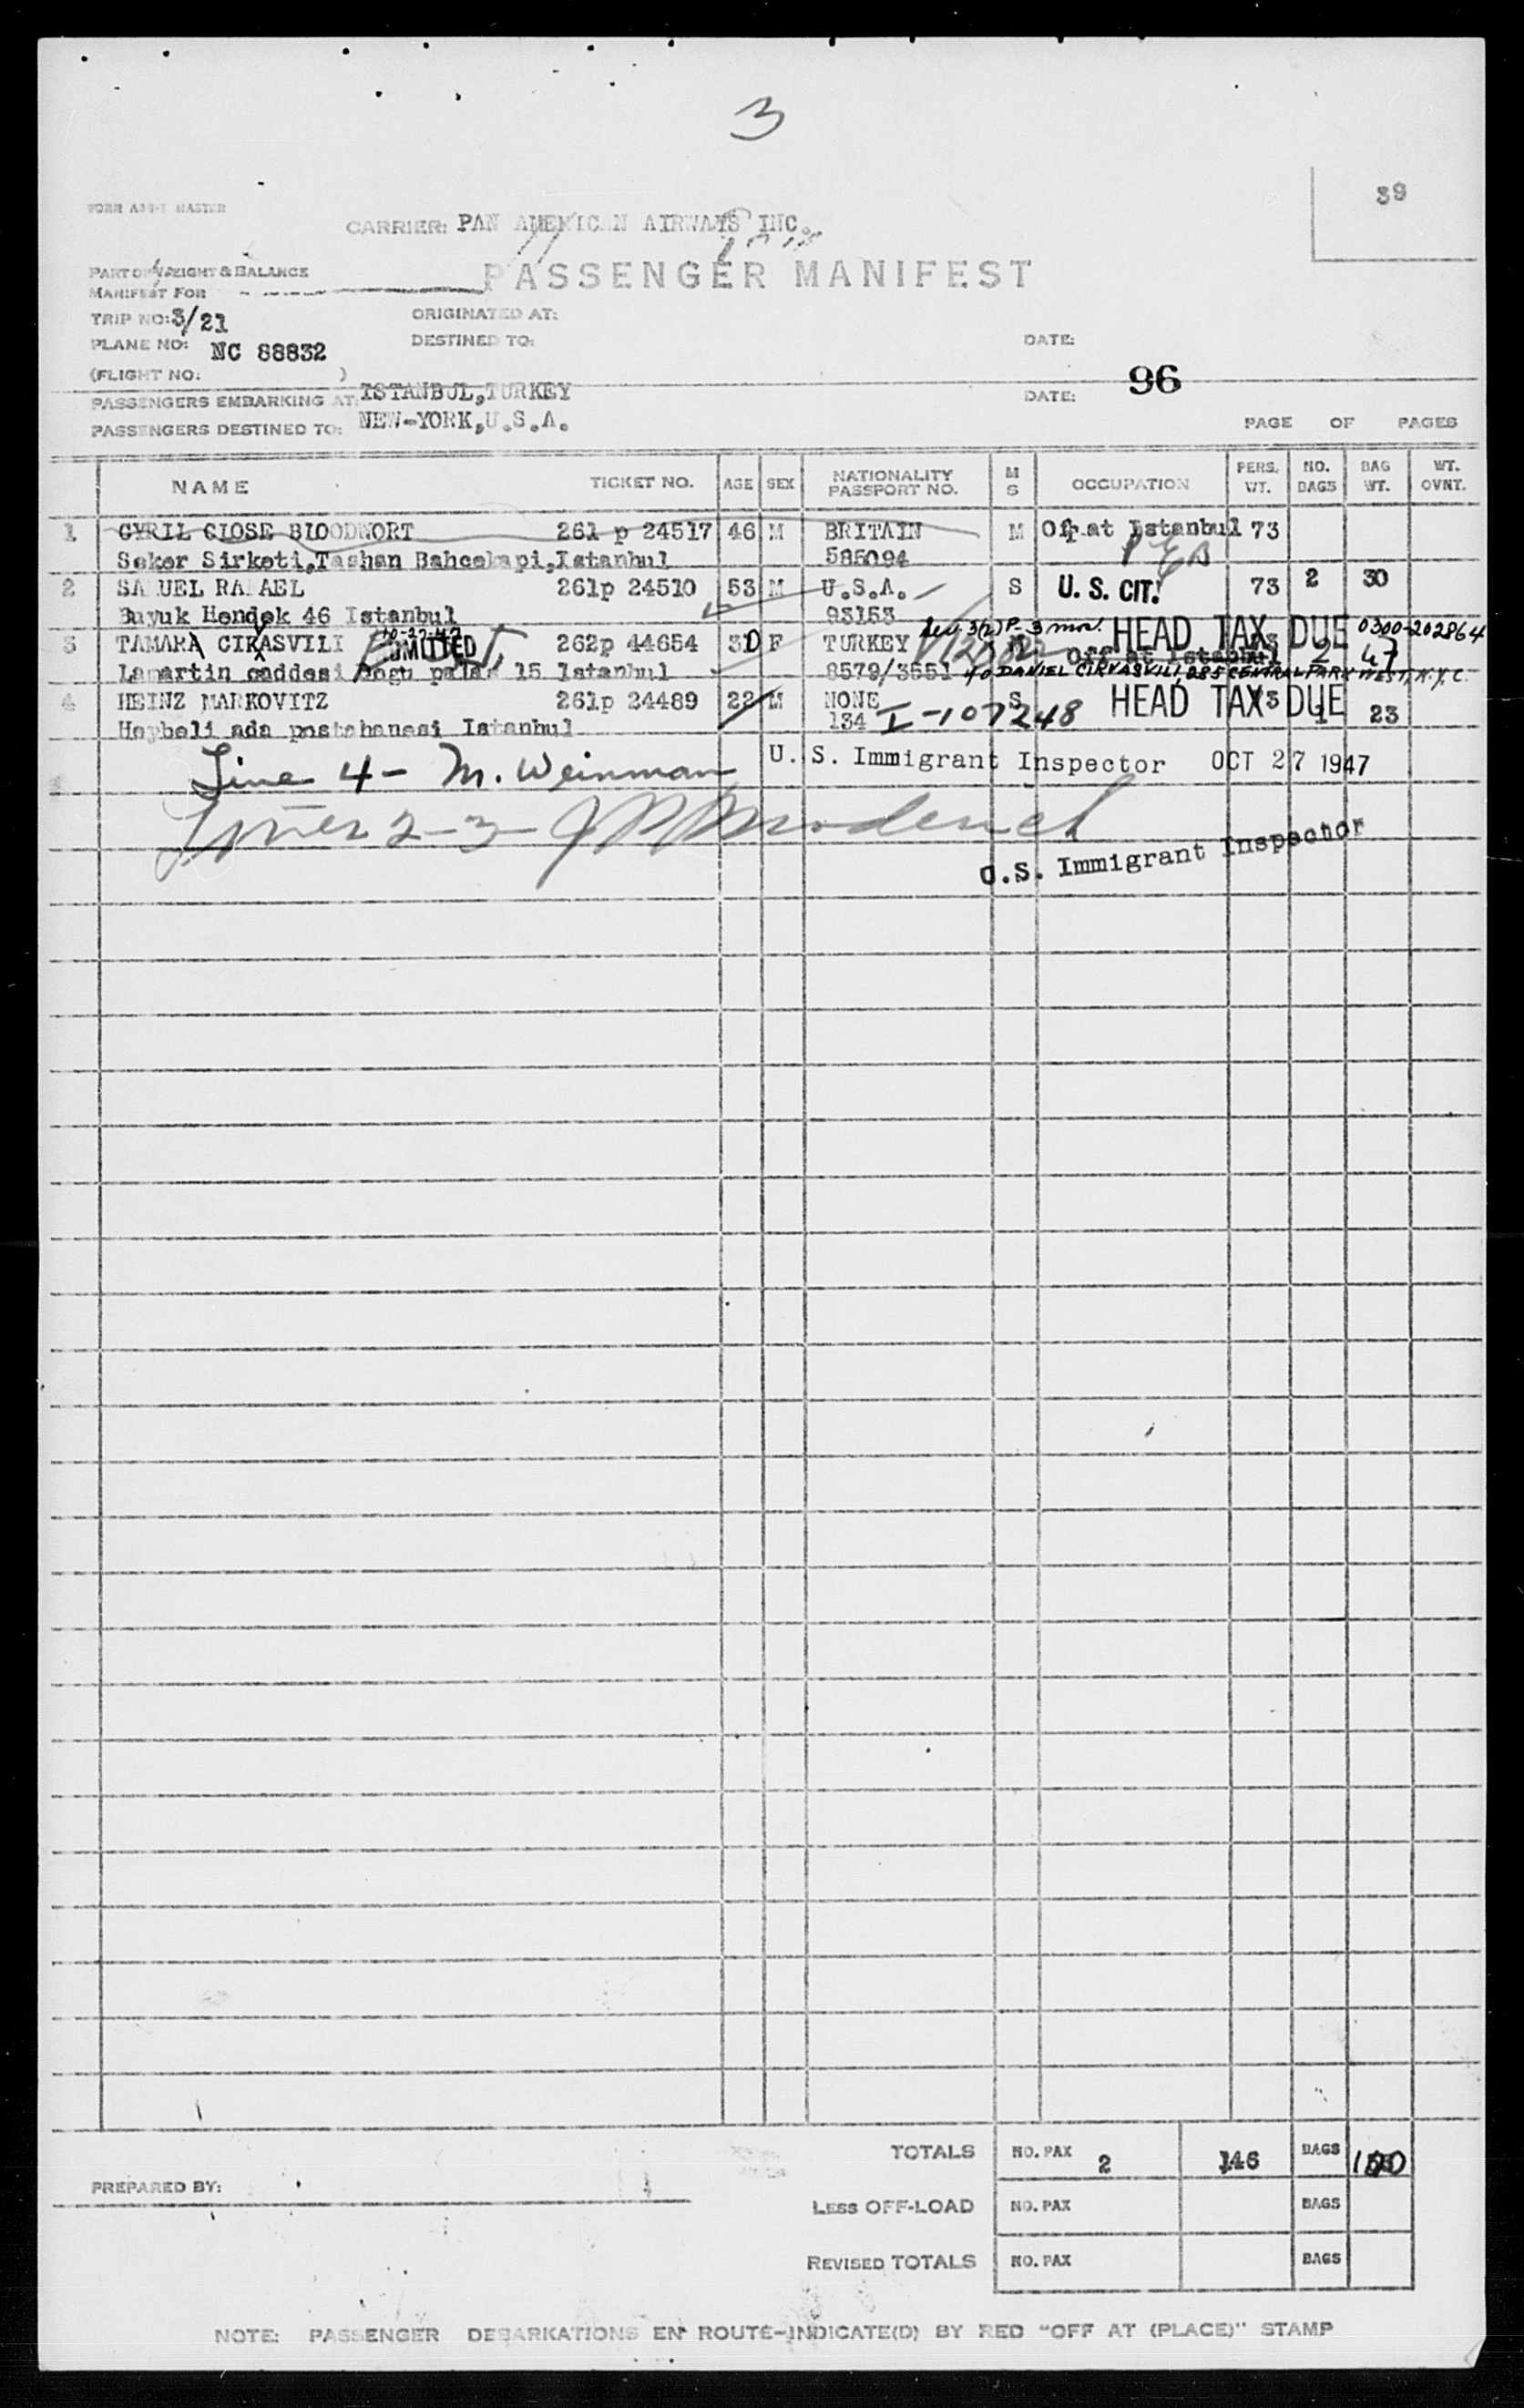 3
39
CARRIER: PAN AMERICAN AIRWAYS INC.
PART OF WEIGHT & BALANCE
MANIFEST FOR
PASSENGER MANIFEST
TRIP NO: 3/21
ORIGINATED AT:
PLANE NO: NC 88832
DESTINED TO:
DATE:
(FLIGHT NO. )
96
PASSENGERS EMBARKING AT: ISTANBUL,TURKEY
DATE:
PASSENGERS DESTINED TO: NEW-YORK,U.S.A.
PAGE OF PAGES
NAME TICKET NO. AGE SEX NATIONALITY PASSPORT NO. M S OCCUPATION PERS. WT. NO. BAGS BAG WT. WT. OVNT.
1 CYRIL CLOSE BLOODWORT 261 p 24517 46 M BRITAIN M Off at Istanbul 73
Seker Sirketi,Tashan Bahcekapi,Istanbul 585094
2 SAMUEL RAFAEL 261p 24510 53 M U.S.A. S U. S. CIT. 73 2 30
Buyuk Hendek 46 Istanbul 93153
10-27-47 3(2) P-3 mos. HEAD TAX DUE 0300-202864
3 TAMARA CIKASVILI ADMITTED 262p 44654 30 F TURKEY Off at Istanbul 2 47
Lamartin caddesi Dogu palas 15 Istanbul 8579/3551 c/o DANIEL CIKVASVILI, 285 CENTRAL PARK WEST, N.Y.C.
4 HEINZ MARKOVITZ 261p 24489 22 M NONE S HEAD TAX DUE 73 1 23
Heybeli ada postahanesi Istanbul 134 I-107248
Line 4 - M. Weinman U. S. Immigrant Inspector OCT 27 1947
Lines 2-3
U.S. Immigrant Inspector
TOTALS NO. PAX 2 146 BAGS 100
PREPARED BY:
LESS OFF-LOAD NO. PAX BAGS
REVISED TOTALS NO. PAX BAGS
NOTE: PASSENGER DEBARKATIONS EN ROUTE-INDICATE(D) BY RED "OFF AT (PLACE)" STAMP